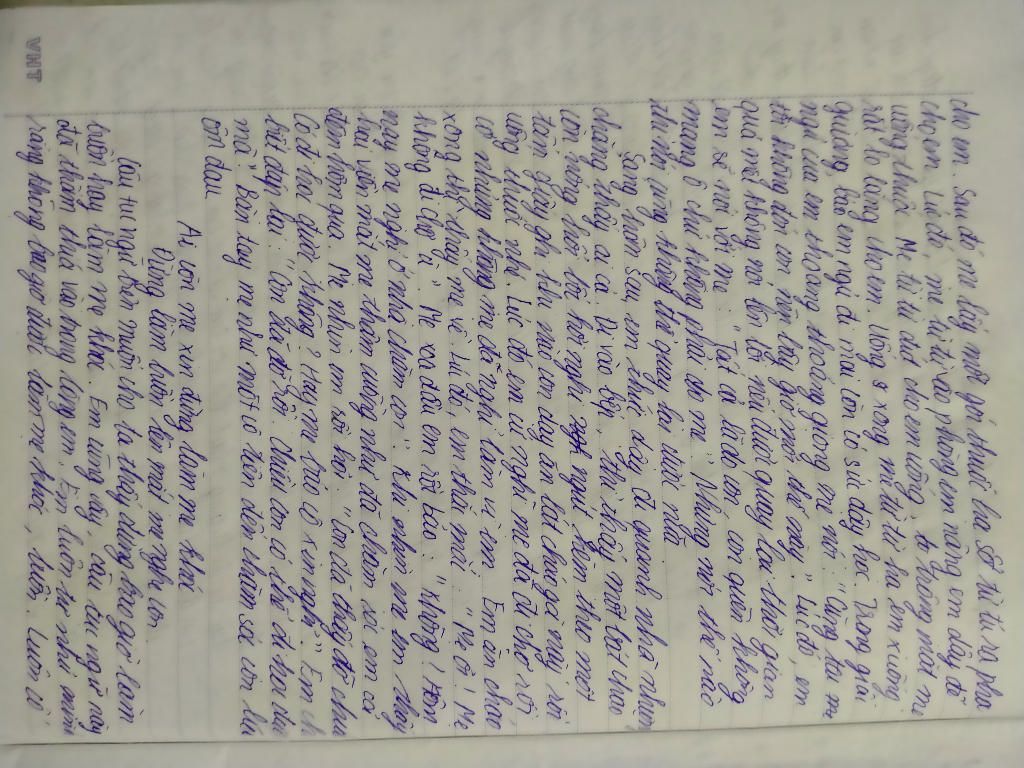 VHT
cho em. Sau đó m lấy một gói thuốc ra từ từ ra pha
cho em. Lúc đó, mẹ từ từ vào phòng em nâng em dậy để
uống thuốc. Mẹ từ từ đút cho em uống. thông mắt mẹ
rất lo lắng cho em. Uống xong mẹ từ từ ra em xuống
giường, bảo em ngủ đi mai còn có sức dậy học. Trong giấc
ngủ của em thoang thoảng giọng m nói: "Cũng tại m
tốt không thì con nên bây giờ mới thế này" Lúc đó, em
quá mệt không nói lên lời nếu được quay lại thời gian
em sẽ nói với m: "Tất cả là do con, con quên không
mang ô chứ không phải do m." Nhưng nói thế nào
thì em cũng không thể quay lại được nữa
Sáng hôm sau, em thức dậy đi quanh nhà nhưng
chẳng thấy ai cả. Đi vào bếp, thì thấy một bát cháo
còn nóng hổi và hơi nghi ngút, kèm theo một
toàn giấy ghi thế này: con dậy ăn bát cháo gà này rồi
uống thuốc nhé. Lúc đó em cứ nghĩ mẹ đã đi chợ rồi
có nhưng không mẹ đã nghỉ làm vì em. Em ăn cháo
xong thì thấy mẹ về. Lúc đó, em thắc mắc: "Mẹ ơi! Mẹ
không đi chợ à". Mẹ xoa đầu em rồi bảo: "Không! Hôm
nay m nghỉ ở nhà chăm con" Khi nhìn em em thấy
hai viền mắt m thâm cuồng như đã chăm sóc em cả
đêm hôm qua. Mẹ nhìn em rồi hỏi: "Con có thấy đỡ chưa
Có đi học được không? Hay m bảo cô xin nghỉ" Em
liền đáp lại: "Con đã đỡ rồi. Chiều con có thể đi học được
mà". Bàn tay mẹ như một cô tiên đến chăm sóc con lúc
ốm đau
Ai còn mẹ xin đừng làm mẹ khóc
Đừng làm buồn lên mắt mẹ nghe con.
Câu thơ ngắn lên muốn cho ta thấy đừng bao giờ làm
buồn hay làm mẹ khóc. Em cũng vậy, câu văn ngắn này
đã thấm thía vào trong lòng em. Em luôn tự nhủ mình
rằng không bao giờ được làm mẹ khóc, buồn. Luôn cố